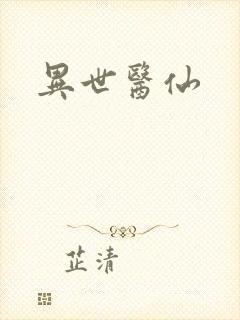 異世醫仙
芷清